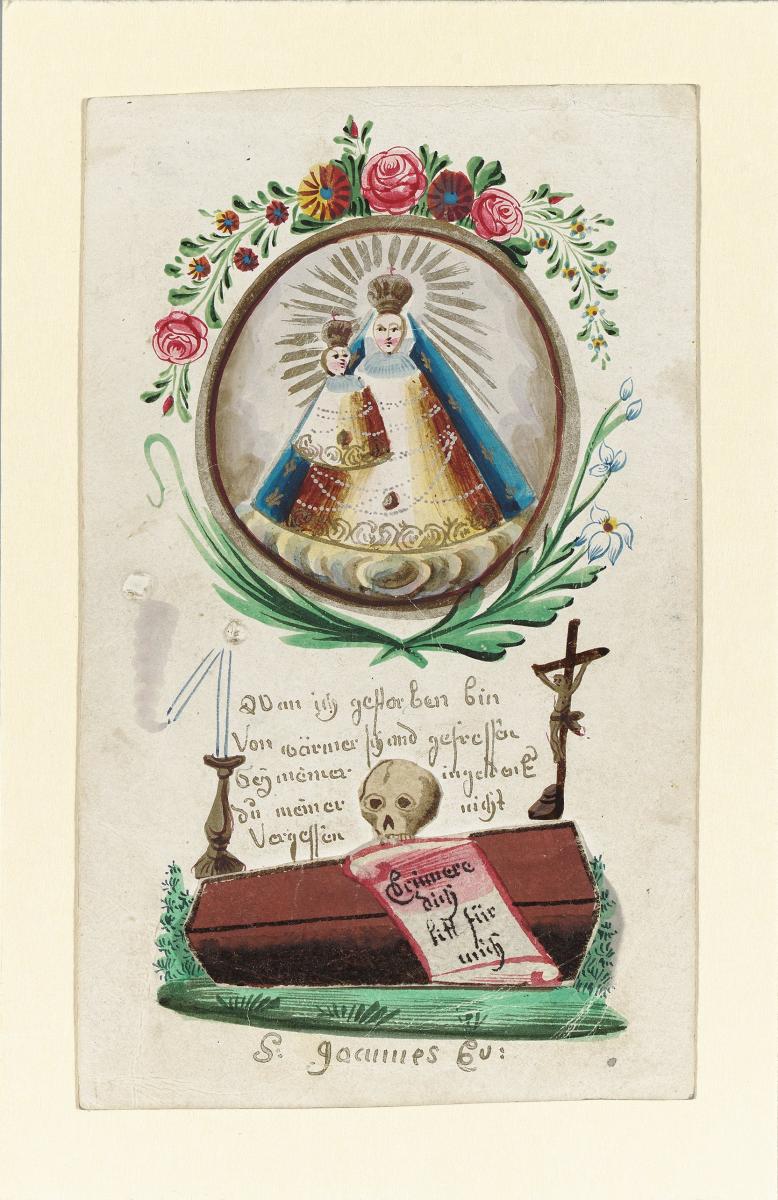 Wan ich gestorben bin
Von würmer sch and gefressen
Seÿ meiner ingedenk
du meiner nicht
Vergessen
Erinnere
dich
bitt für
mich
S: Joannes Ev: